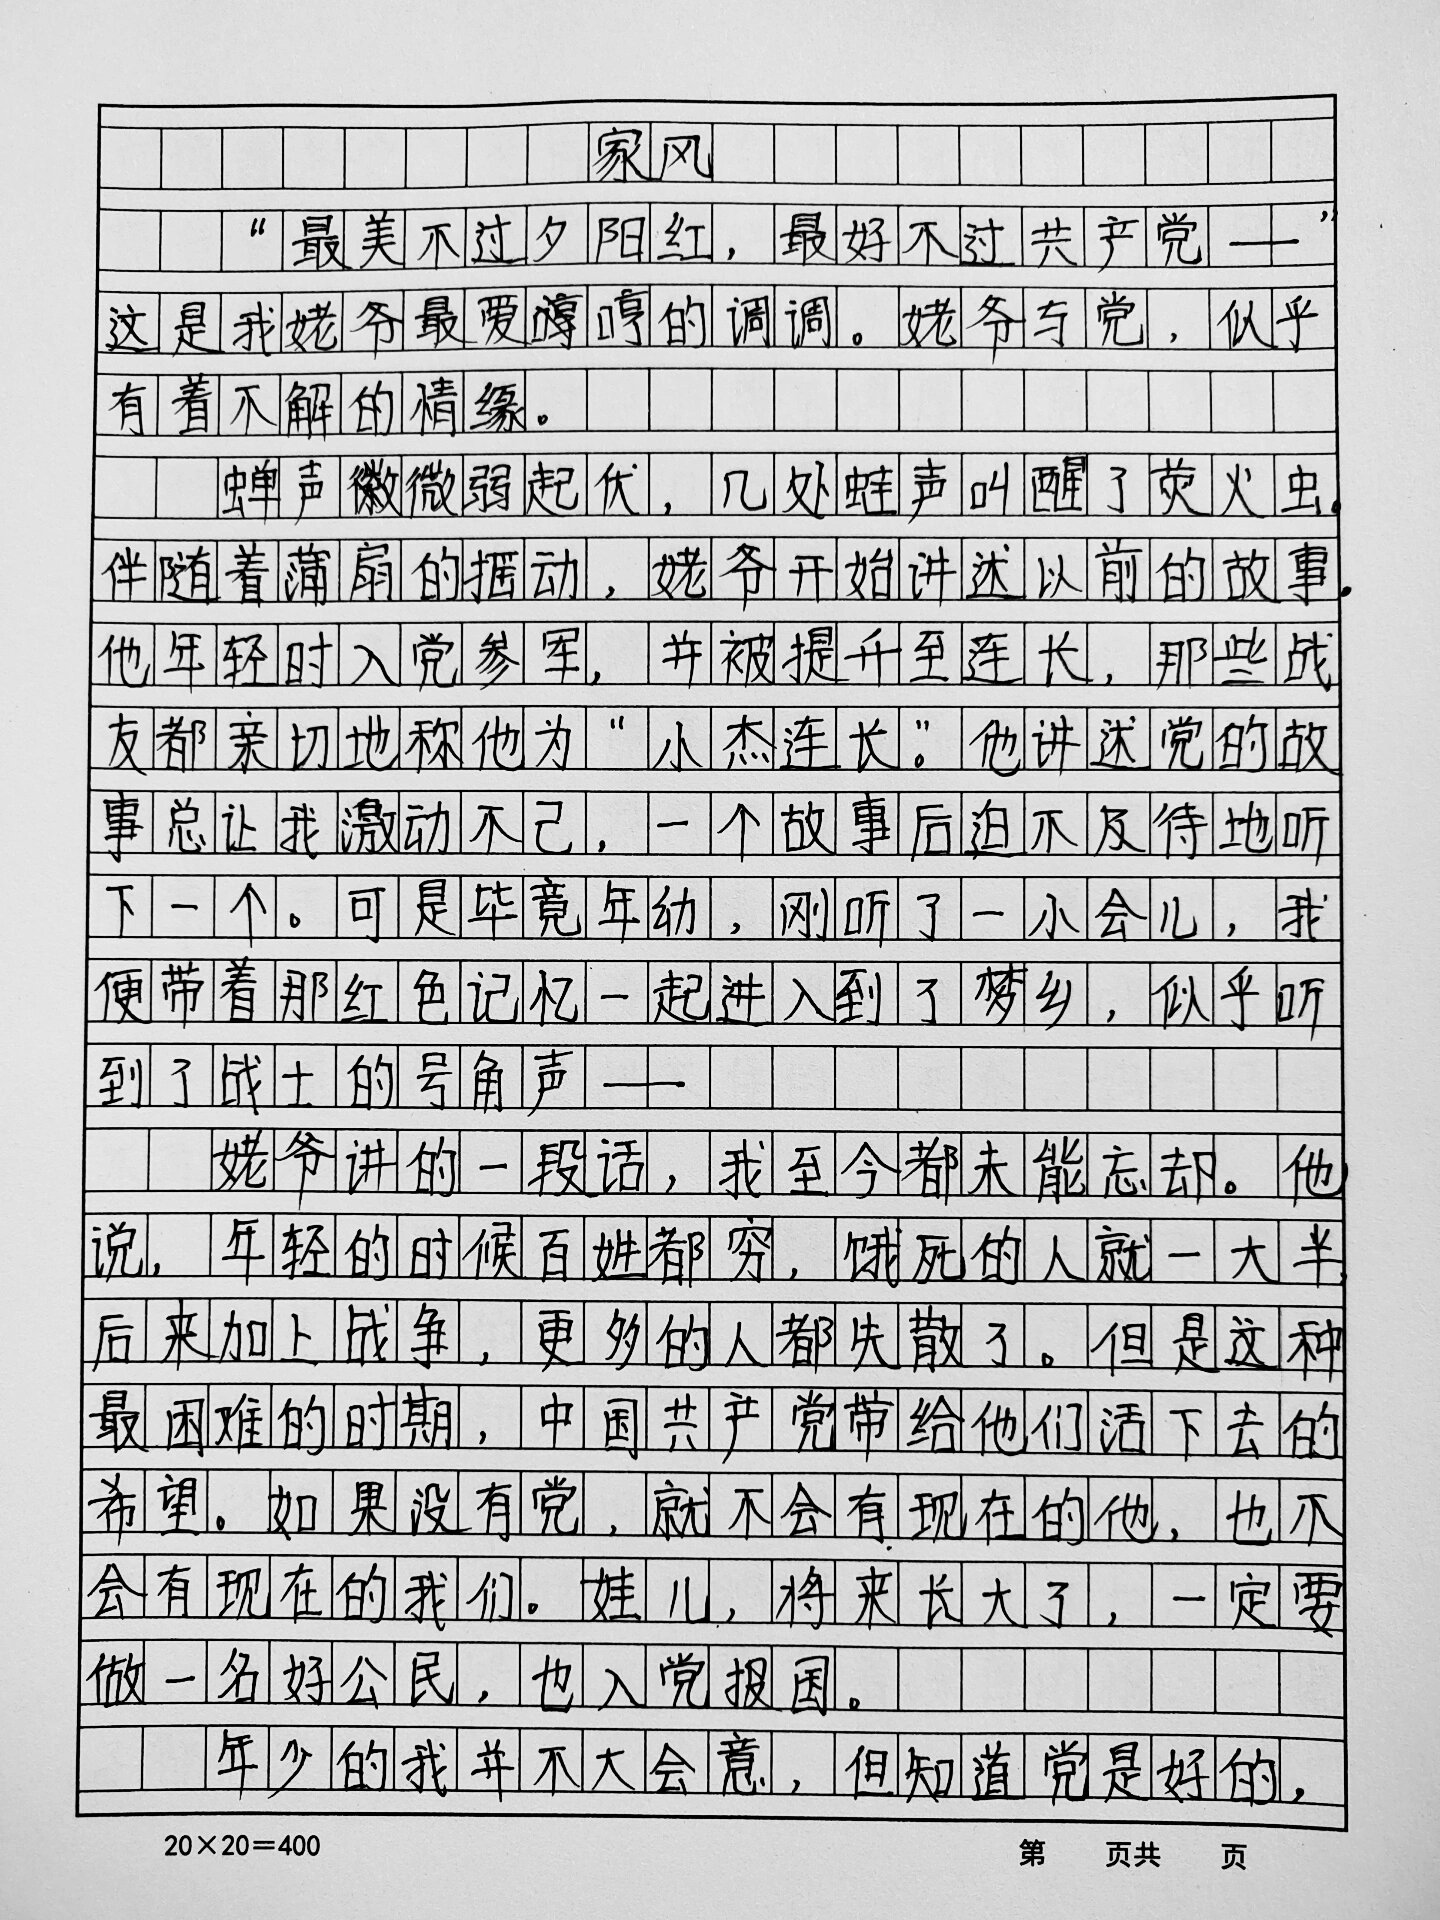 家风
“最美不过夕阳红，最好不过共产党——”
这是我姥爷最爱哼哼的调调。姥爷与党，似乎
有着不解的情缘。
蝉声微微弱起伏，几处蛙声叫醒了荧火虫。
伴随着蒲扇的摇动，姥爷开始讲述以前的故事.
他年轻时入党参军，并被提升至连长，那些战
友都亲切地称他为“小杰连长”。他讲述党的故
事总让我激动不己，一个故事后迫不及待地听
下一个。可是毕竟年幼，刚听了一小会儿，我
便带着那红色记忆一起进入到了梦乡，似乎听
到了战士的号角声——
姥爷讲的一段话，我至今都未能忘却。他
说，年轻的时候百姓都穷，饿死的人就一大半,
后来加上战争，更多的人都失散了。但是这种
最困难的时期，中国共产党带给他们活下去的
希望。如果没有党，就不会有现在的他，也不
会有现在的我们。娃儿，将来长大了，一定要
做一名好公民，也入党报国。
年少的我并不大会意，但知道党是好的，
20×20=400
第 页共 页